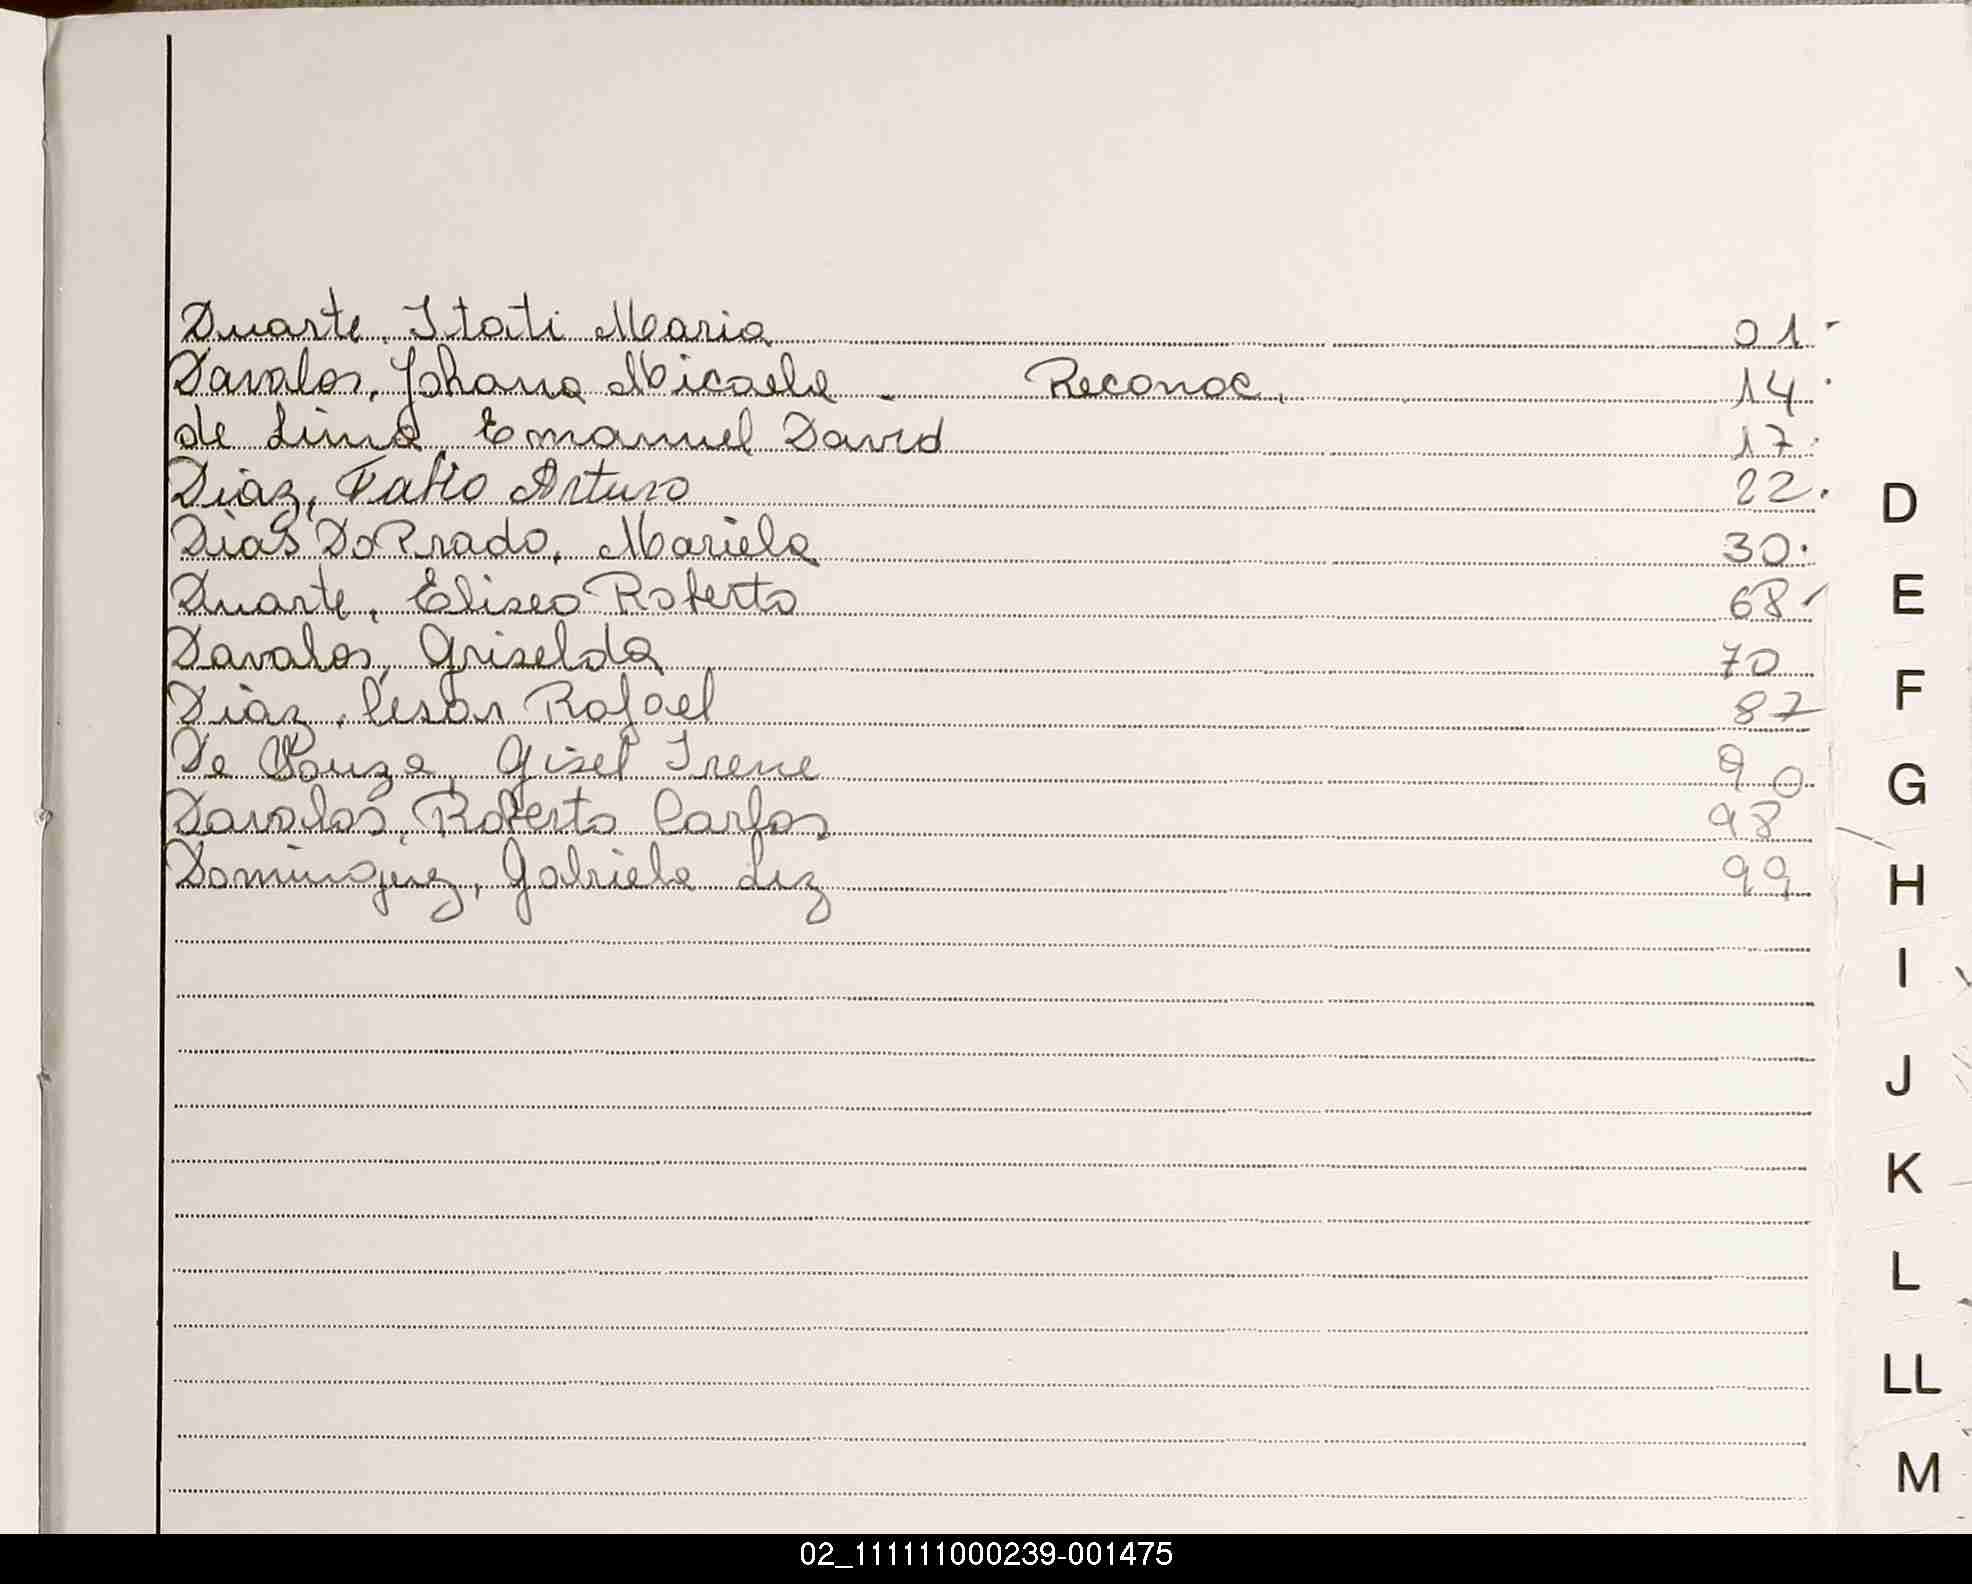 Duarte, Itati Maria 01
Davalos, Johana Micaela - Reconoc. 14
de Lima Emanuel David 17
Diaz, Fabio Arturo 22
Dias Do Prado, Mariela 30
Duarte, Eliseo Roberto 68
Davalos, Griselda 70
Diaz, Cesar Rafael 87
De Souza, Gisel Irene 90
Davalos, Roberto Carlos 98
Dominguez, Gabriela Liz 99
D
E
F
G
H
I
J
K
L
LL
M
02_111111000239-001475